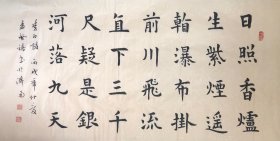 日照香爐
生紫煙遥
看瀑布掛
前川飛流
直下三千
尺疑是銀
河落九天
李白詩 丙戌年